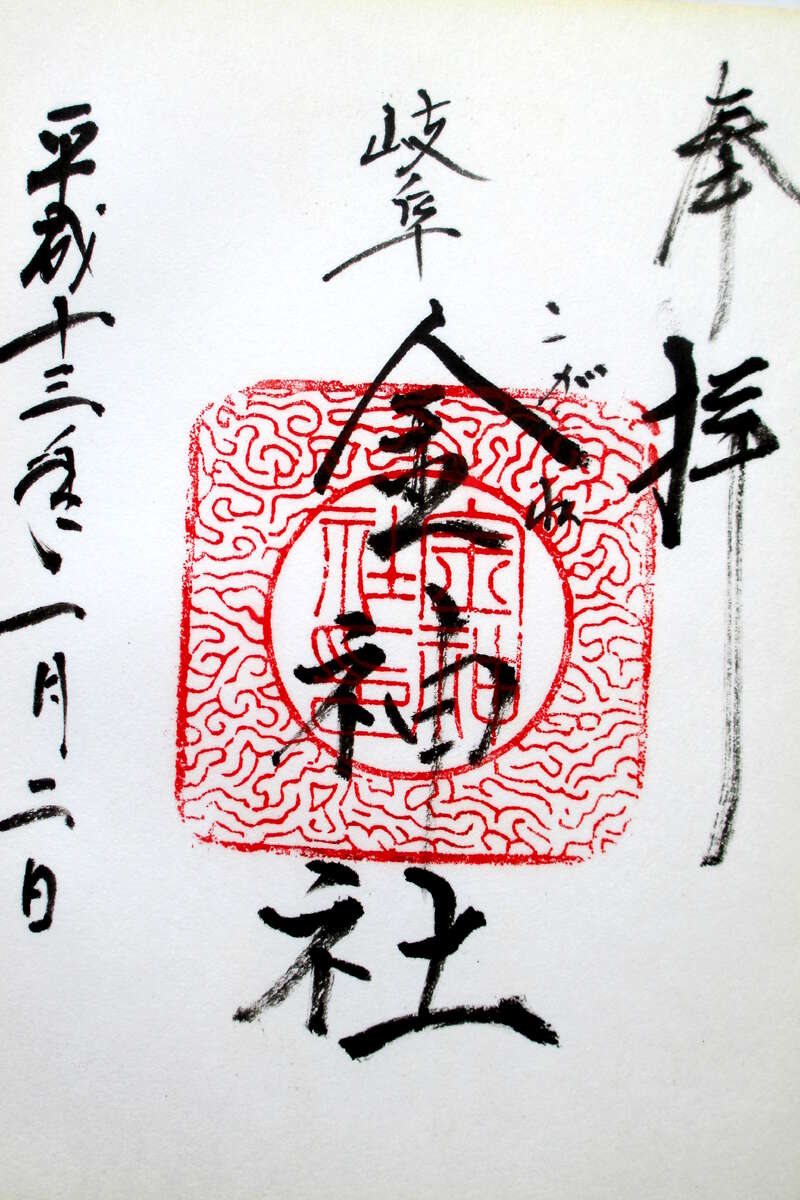 奉拝
こがね
岐阜
金神社
平成十三年一月二日